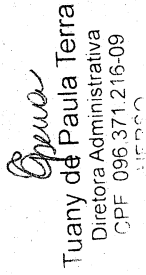 Tuany de Paula Terra
Diretora Administrativa
CPF 096.371.216-09